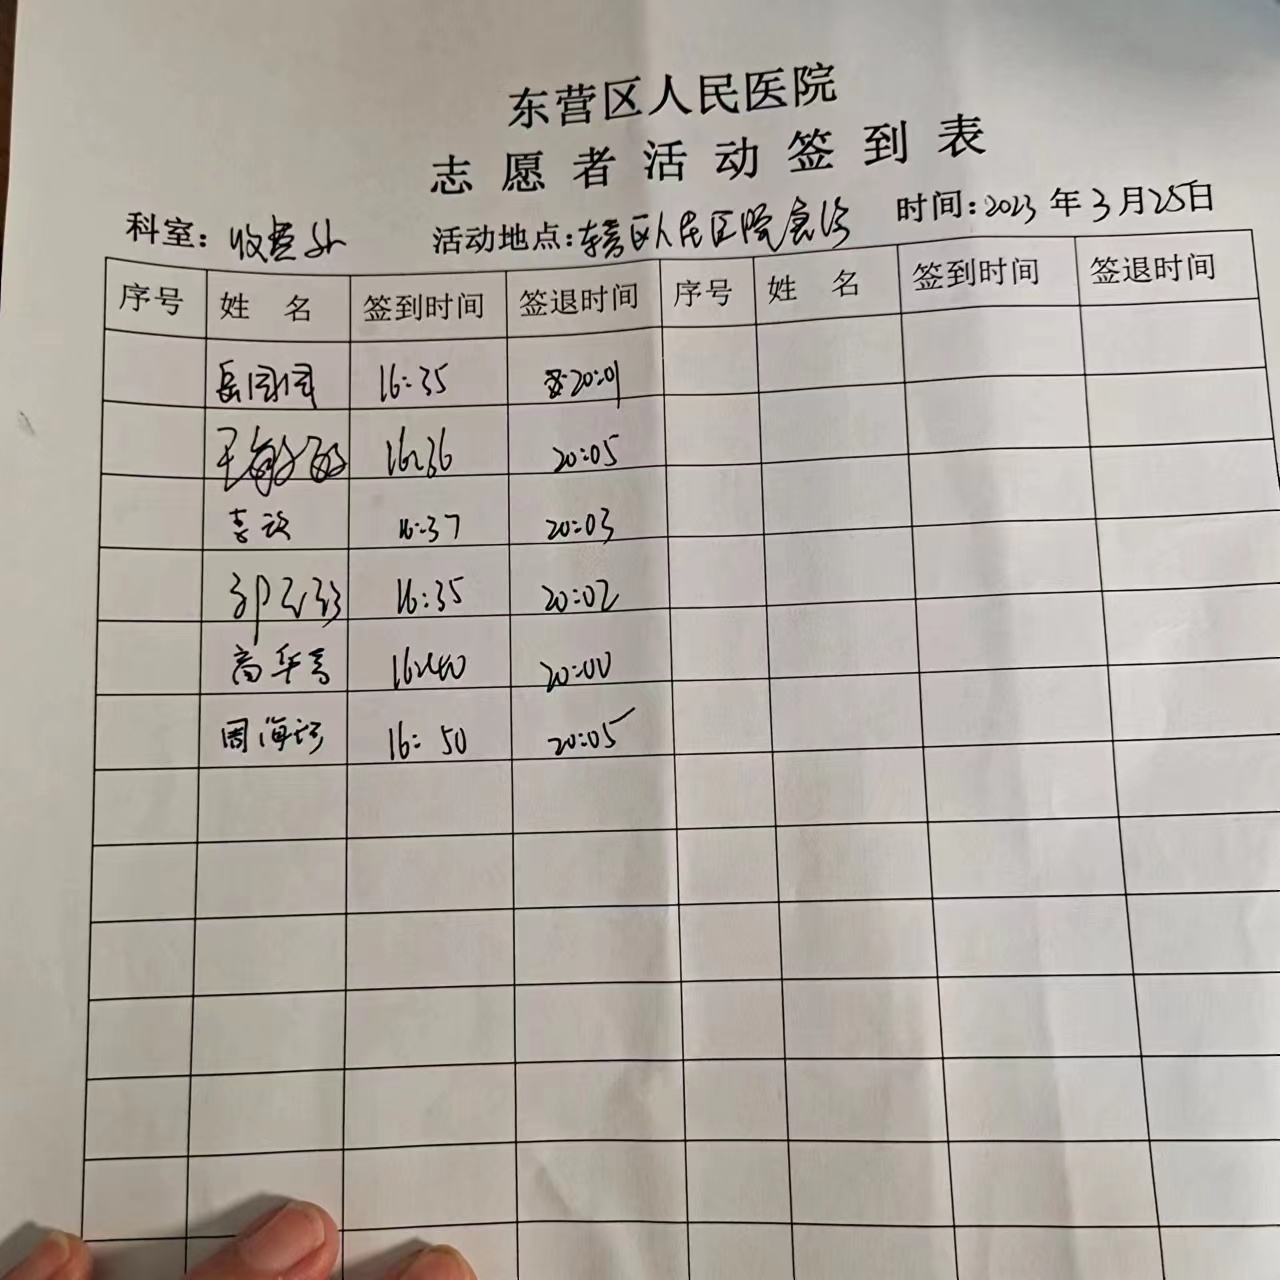 东营区人民医院
志愿者活动签到表
科室: 收费处 活动地点: 东营区人民医院急诊 时间: 2023年3月25日
序号 姓名 签到时间 签退时间 序号 姓名 签到时间 签退时间
岳团团 16:35 20:01
王敏敏 16:36 20:05
16:37 20:03
16:35 20:02
高华秀 16:40 20:00
周海 16:50 20:05